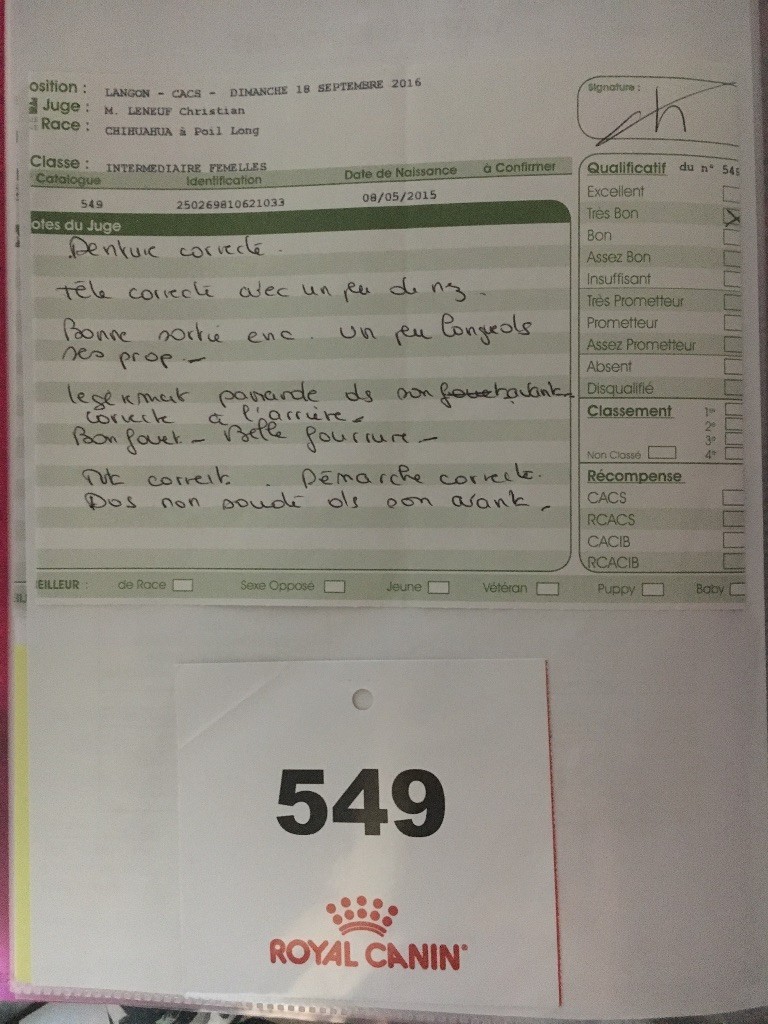 osition : LANGON - CACS - DIMANCHE 18 SEPTEMBRE 2016
Juge : M. LENEUF Christian
Race : CHIHUAHUA à Poil Long
Signature :
Classe : INTERMEDIAIRE FEMELLES
Catalogue Identification Date de Naissance à Confirmer
549 250269810621033 08/05/2015
otes du Juge
Denture correcte.
Tête correcte avec un peu de nez.
Bonne sortie enc. un peu longeols
ses prop.-
legèrement panarde ds son avant
correcte à l'arrière.
Bon fouet - Belle fourrure -
correct. Démarche correcte.
Dos non soudé ds son avant.
Qualificatif du n° 549
Excellent
Très Bon X
Bon
Assez Bon
Insuffisant
Très Prometteur
Prometteur
Assez Prometteur
Absent
Disqualifié
Classement 1er
2e
3e
Non Classé 4e
Récompense
CACS
RCACS
CACIB
RCACIB
EILLEUR : de Race Sexe Opposé Jeune Vétéran Puppy Baby
549
ROYAL CANIN